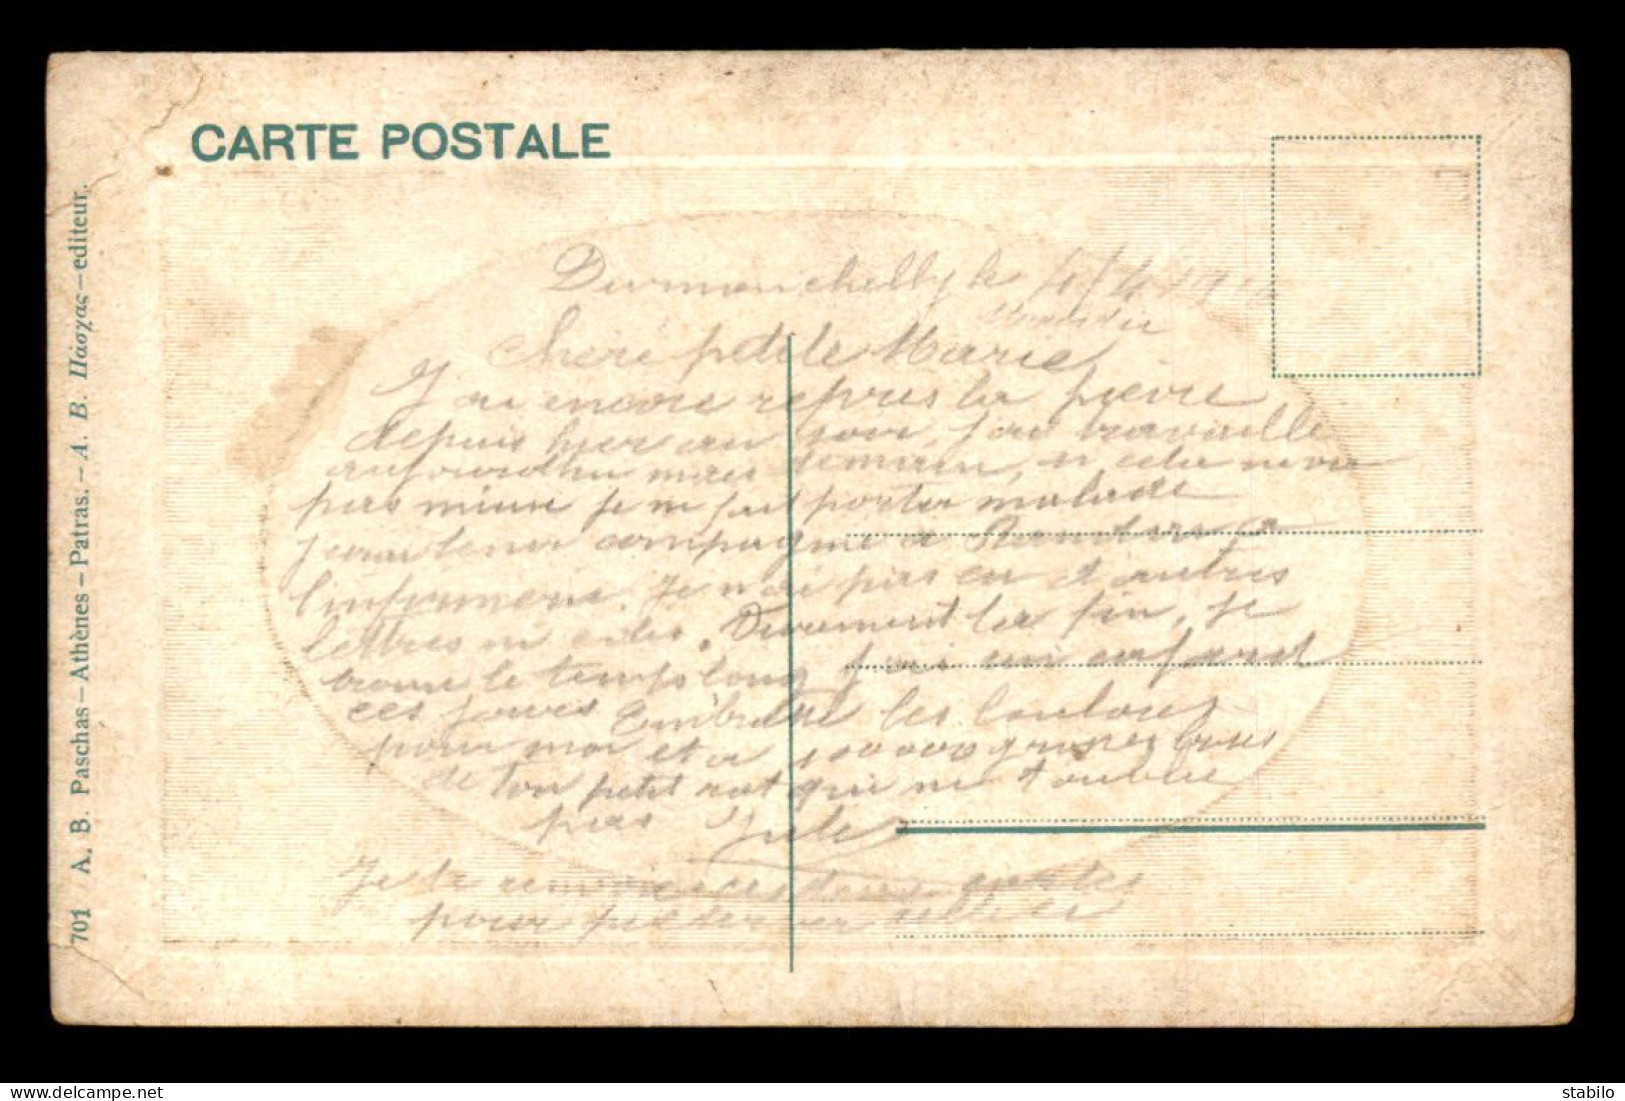 CARTE POSTALE
701 A. B. Paschas—Athènes—Patras.—A. B. Πάσχας—editeur.
le 4/4 19
chère petite Marie
J'ai encore repris la fièvre
depuis hier au soir, j'ai travaillé
aujourd'hui mais demain, si cela ne va
pas mieux je me fait porter malade
j'irai tenir compagnie a a
l'infirmerie. Je n'ai pas eu d'autres
lettres ni colis. Vivement la fin, je
trouve le temps long j'ai un cafard
ces jours Embrasse les loulous
pour moi et a 100000 grosses bises
de ton petit rat qui ne t'oublie
pas Jules
Je te renvoie cartes
pour
delcampe.net
stabilo